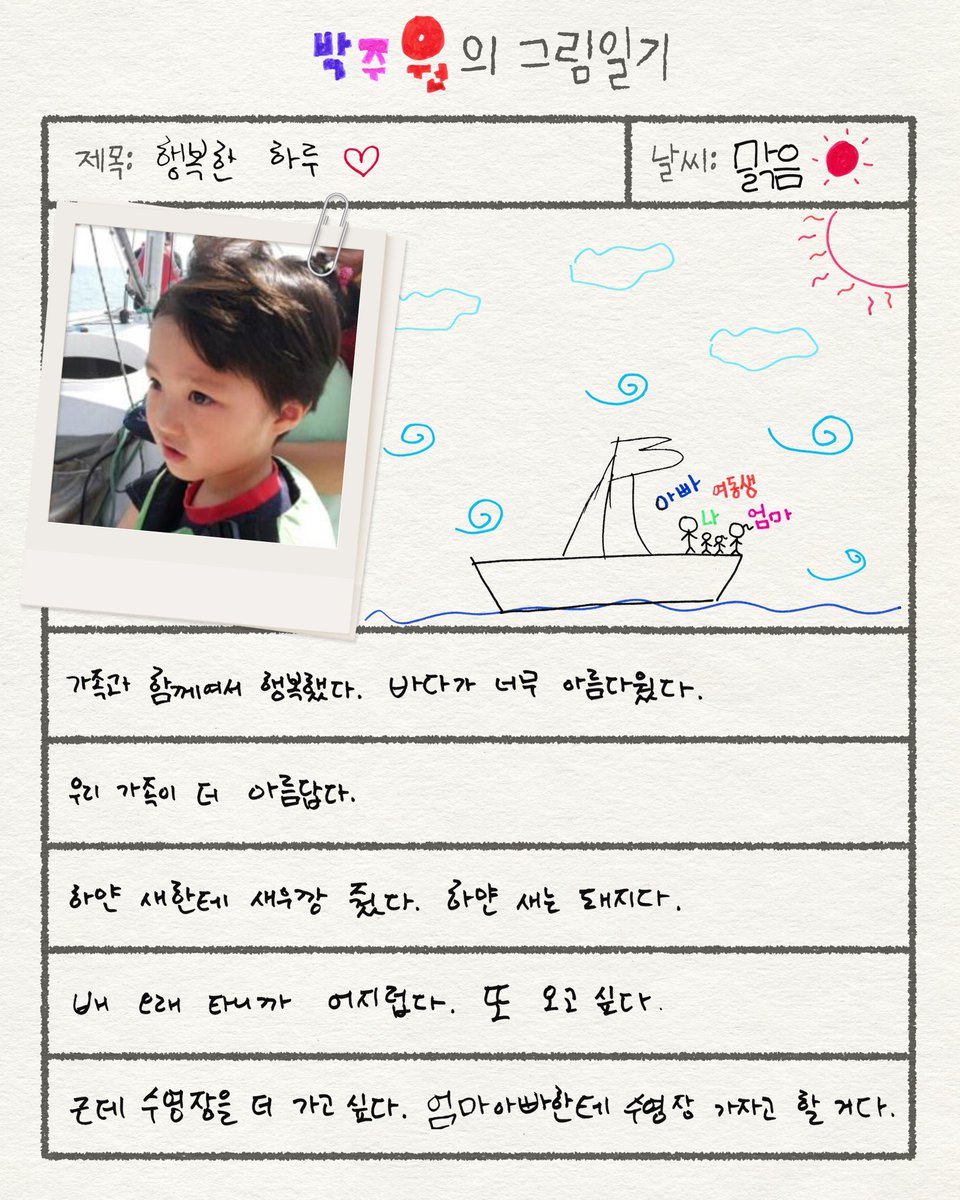 박주원의 그림일기
제목: 행복한 하루
날씨: 맑음
아빠 여동생
나 엄마
가족과 함께여서 행복했다. 바다가 너무 아름다웠다.
우리 가족이 더 아름답다.
하얀 새한테 새우깡 줬다. 하얀 새는 돼지다.
배 오래 타니까 어지럽다. 또 오고 싶다.
근데 수영장을 더 가고 싶다. 엄마아빠한테 수영장 가자고 할 거다.